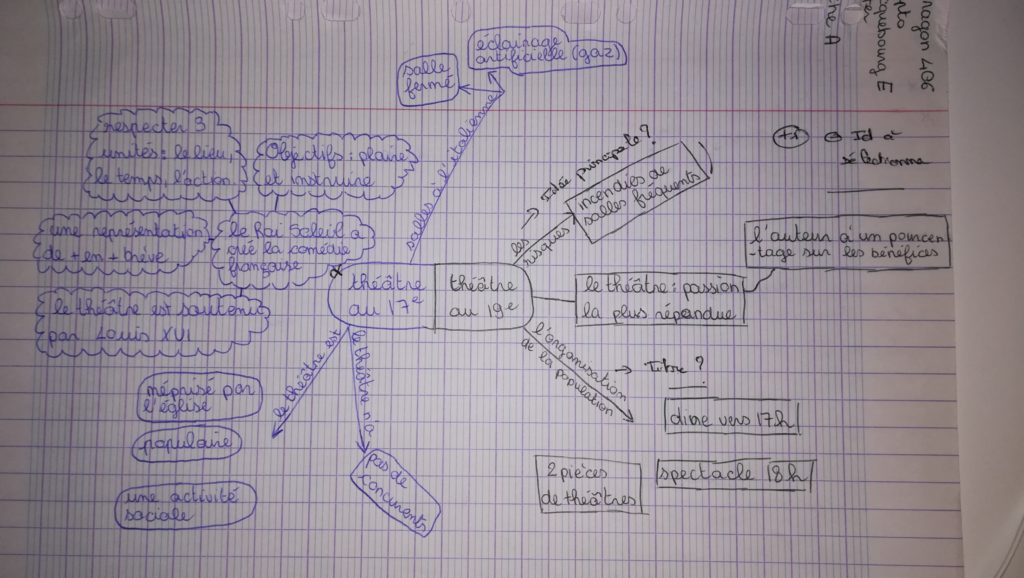 éclairage
artificielle (gaz)
salle
fermé
salles à l'italienne
respecter 3
unités : le lieu,
le temps, l'action
Objectifs : plaire
et instruire
une représentation
de + en + brève
le Roi Soleil a
créé la comédie
française
le théâtre est soutenu
par Louis XVI
théâtre
au 17e
théâtre
au 19e
le théâtre est
méprisé par
l'église
populaire
une activité
sociale
le théâtre n'a
pas de
concurrents
les
risques
→ Idée principale ?
incendies de
salles fréquents
le théâtre : passion
la plus répandue
l'auteur à un pourcen
-tage sur les bénéfices
l'organisation
de la population
→ Titre ?
dîne vers 17h
spectacle 18h
2 pièces
de théâtres
+1
Id à
406
E
A